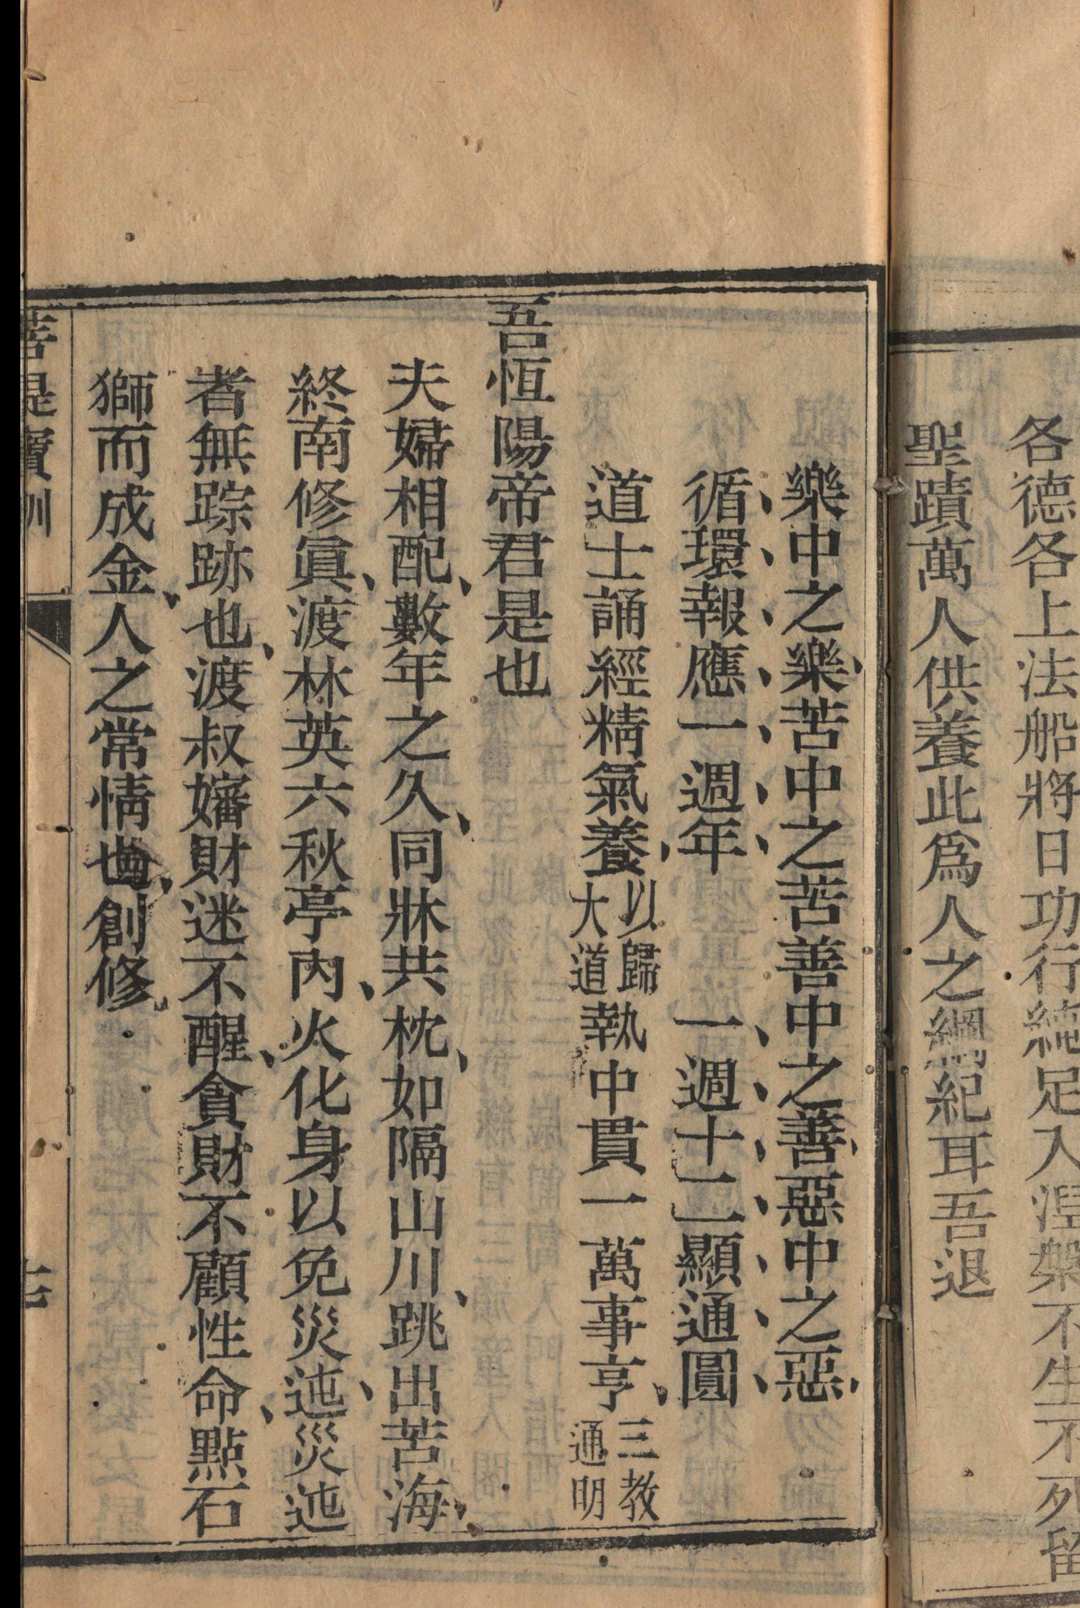 各德各上法船將日功行純足入湼槃不生不死留
聖蹟萬人供養此爲人之綱紀耳吾退
樂中之樂苦中之苦善中之善惡中之惡
循環報應一週年　一週十二顯通圓
道士誦經精氣養以歸大道執中貫一萬事亨三教通明
吾恆陽帝君是也
夫婦相配數年之久同牀共枕如隔山川跳出苦海
終南修眞渡林英六秋亭內火化身以免災迍災迍
者無踪跡也渡叔嬸財迷不醒貪財不顧性命點石
獅而成金人之常情也創修
苦是寶訓
七